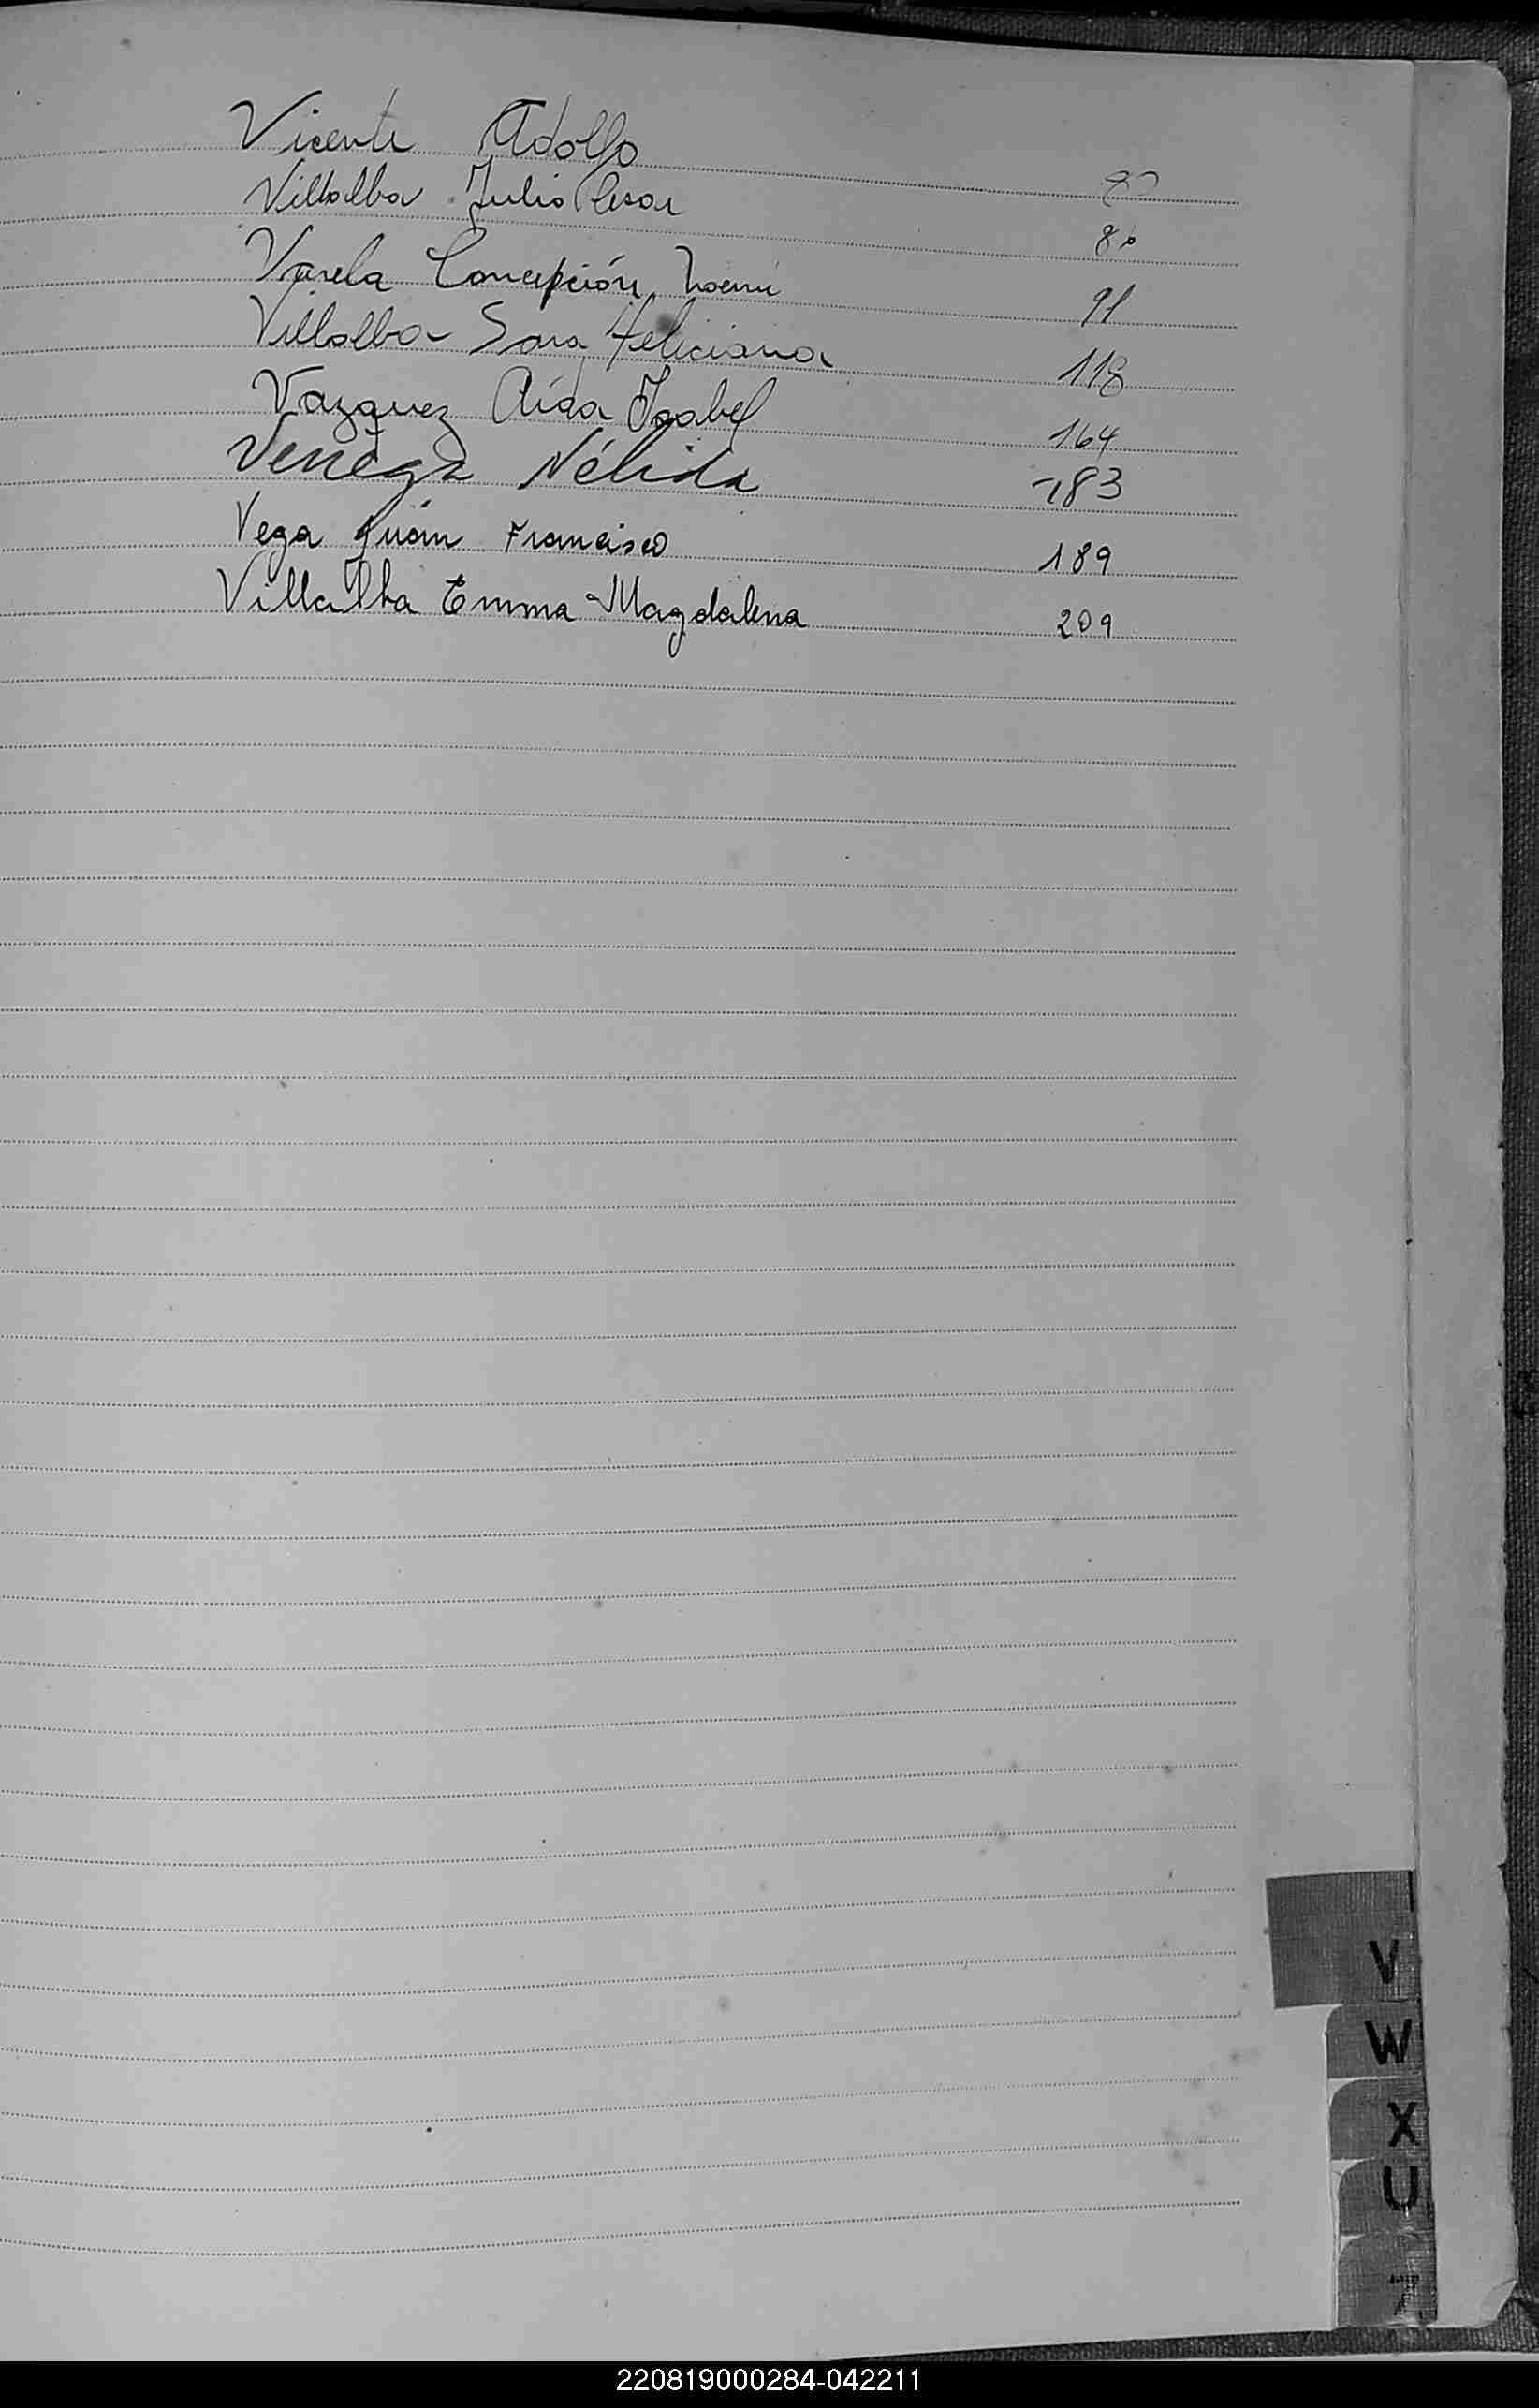 Vicente Adolfo
Villalba Julio Cesar 80
Varela Concepción Noemi 91
Villalba Sara Feliciana 118
Vazquez Aída Isabel 164
Venega Nélida 183
Vega Juan Francisco 189
Villalba Emma Magdalena 209
V
W
X
U
Z
220819000284-042211